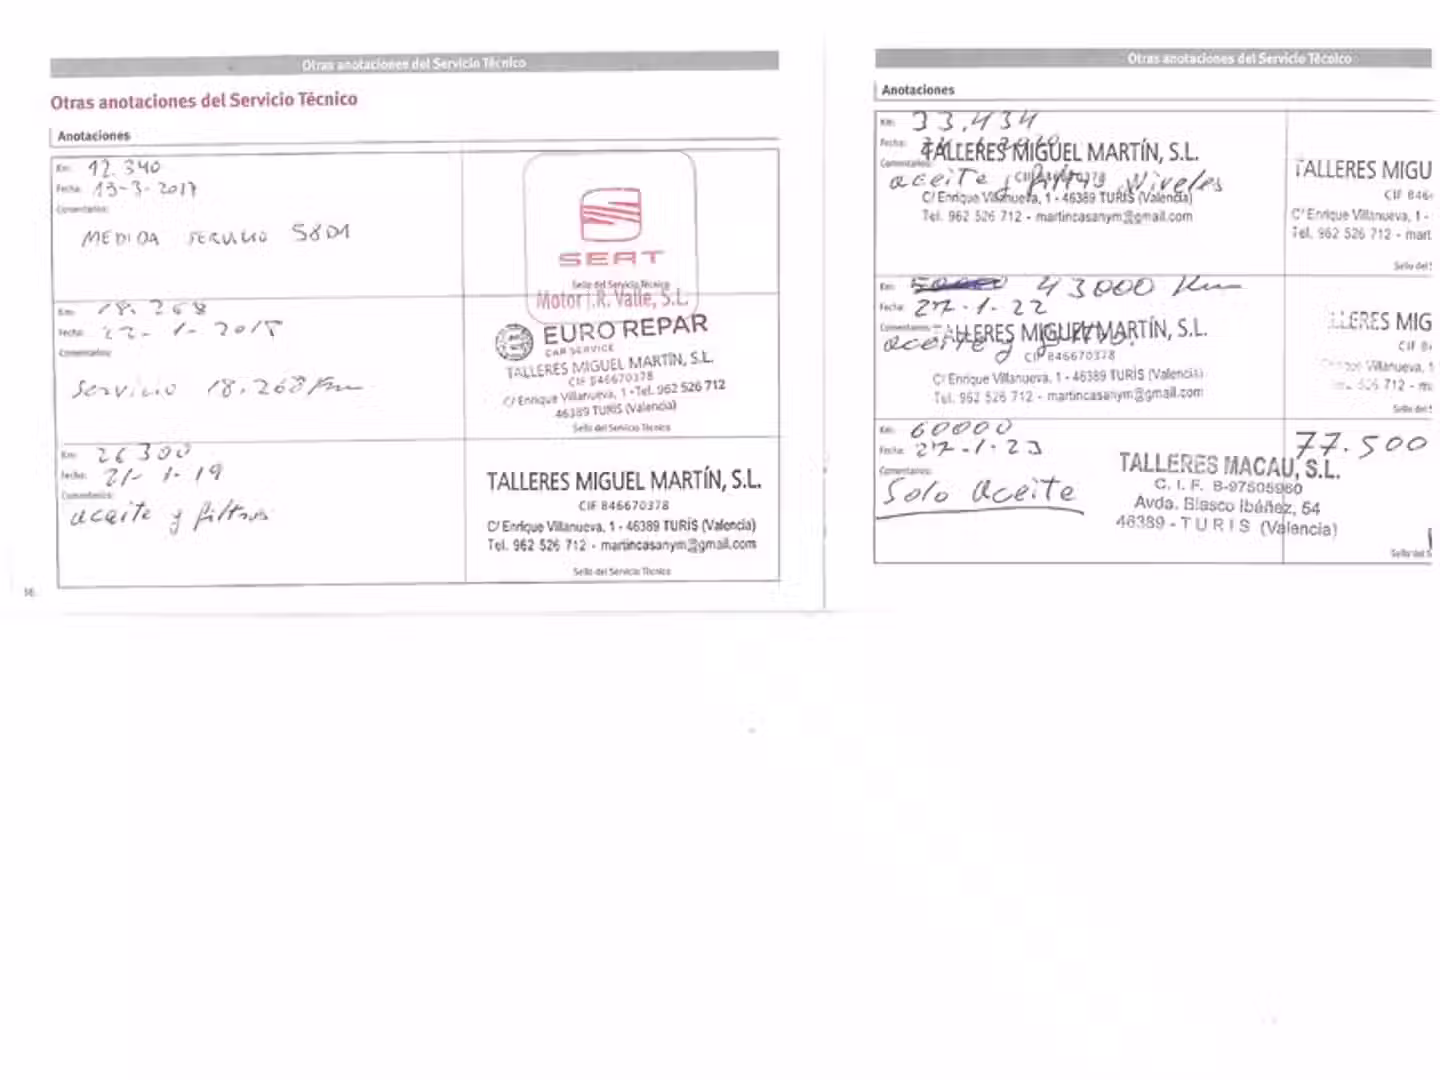 Otras anotaciones del Servicio Técnico
Otras anotaciones del Servicio Técnico
Anotaciones
Km: 12.340
Fecha: 13-3-2017
Comentarios:
MEDIDA SERVICIO
SEAT
Sello del Servicio Técnico
Motor J.R. Valle, S.L.
Km: 18.268
Fecha: 22-1-2018
Comentarios:
Servicio 18.268 Km
EURO REPAR
CAR SERVICE
TALLERES MIGUEL MARTÍN, S.L.
CIF B46670378
C/ Enrique Villanueva, 1 - Tel. 962 526 712
46389 TURIS (Valencia)
Sello del Servicio Técnico
Km: 26300
Fecha: 21-1-19
Comentarios:
aceite y filtros
TALLERES MIGUEL MARTÍN, S.L.
CIF B46670378
C/ Enrique Villanueva, 1 - 46389 TURÍS (Valencia)
Tel. 962 526 712 - martincasanym@gmail.com
Sello del Servicio Técnico
Otras anotaciones del Servicio Técnico
Anotaciones
Km: 33.434
Fecha:
Comentarios:
aceite y filtros Niveles
TALLERES MIGUEL MARTÍN, S.L.
CIF B46670378
C/ Enrique Villanueva, 1 - 46389 TURÍS (Valencia)
Tel. 962 526 712 - martincasanym@gmail.com
TALLERES MIGU
CIF B46
C/ Enrique Villanueva, 1 -
Tel. 962 526 712 - mart
Sello del S
Km: 43000 Km
Fecha: 27-1-22
Comentarios:
aceite y filtro.
TALLERES MIGUEL MARTÍN, S.L.
CIF B46670378
C/ Enrique Villanueva, 1 - 46389 TURÍS (Valencia)
Tel. 962 526 712 - martincasanym@gmail.com
LLERES MIG
CIF B
Villanueva, 1
526 712 - m
Sello del S
Km: 60000
Fecha: 27-1-23
Comentarios:
Solo aceite
77.500
TALLERES MACAU, S.L.
C. I. F. B-97505960
Avda. Blasco Ibáñez, 54
46389 - TURIS (Valencia)
Sello del S